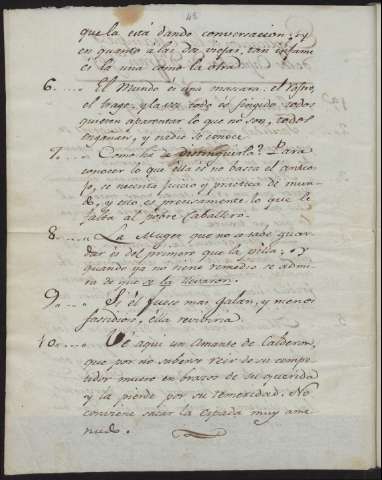 que la está dando conversacion, y
en quanto a las dos viejas, tan infame
es la una como la otra.
6..... El Mundo es una mascara. el rostro,
el trage, y la voz todo es fingido todos
quieren aparentar lo que no son, todos
engañan, y nadie se conoce
7..... Como ha de distinguirla? Para
conocer lo que ella es no basta el anteo-
jo, se necesita juicio y practica de mun-
do, y esto es precisamente lo que le
falta al pobre Caballero.
8..... La Muger que no se sabe guar-
dar es del primero que la pilla, y
quando ya no tiene remedio se admi-
ra de que a la llevaron.
9..... Si él fuese mas galan, y menos
fastidioso, ella reviviria.
10..... Ve aqui un Amante de Calderon,
que por no saberse reir de su compe-
tidor muere en brazos de su querida
y la pierde por su temeridad. No
conviene sacar la Espada muy ame
nudo.